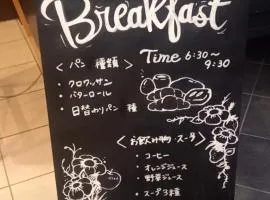 Breakfast
Time 6:30～
9:30
＜パン 種類＞
・クロワッサン
・バターロール
・日替わりパン 種
＜お飲み物・スープ＞
・コーヒー
・オレンジジュース
・野菜ジュース
・スープ3種